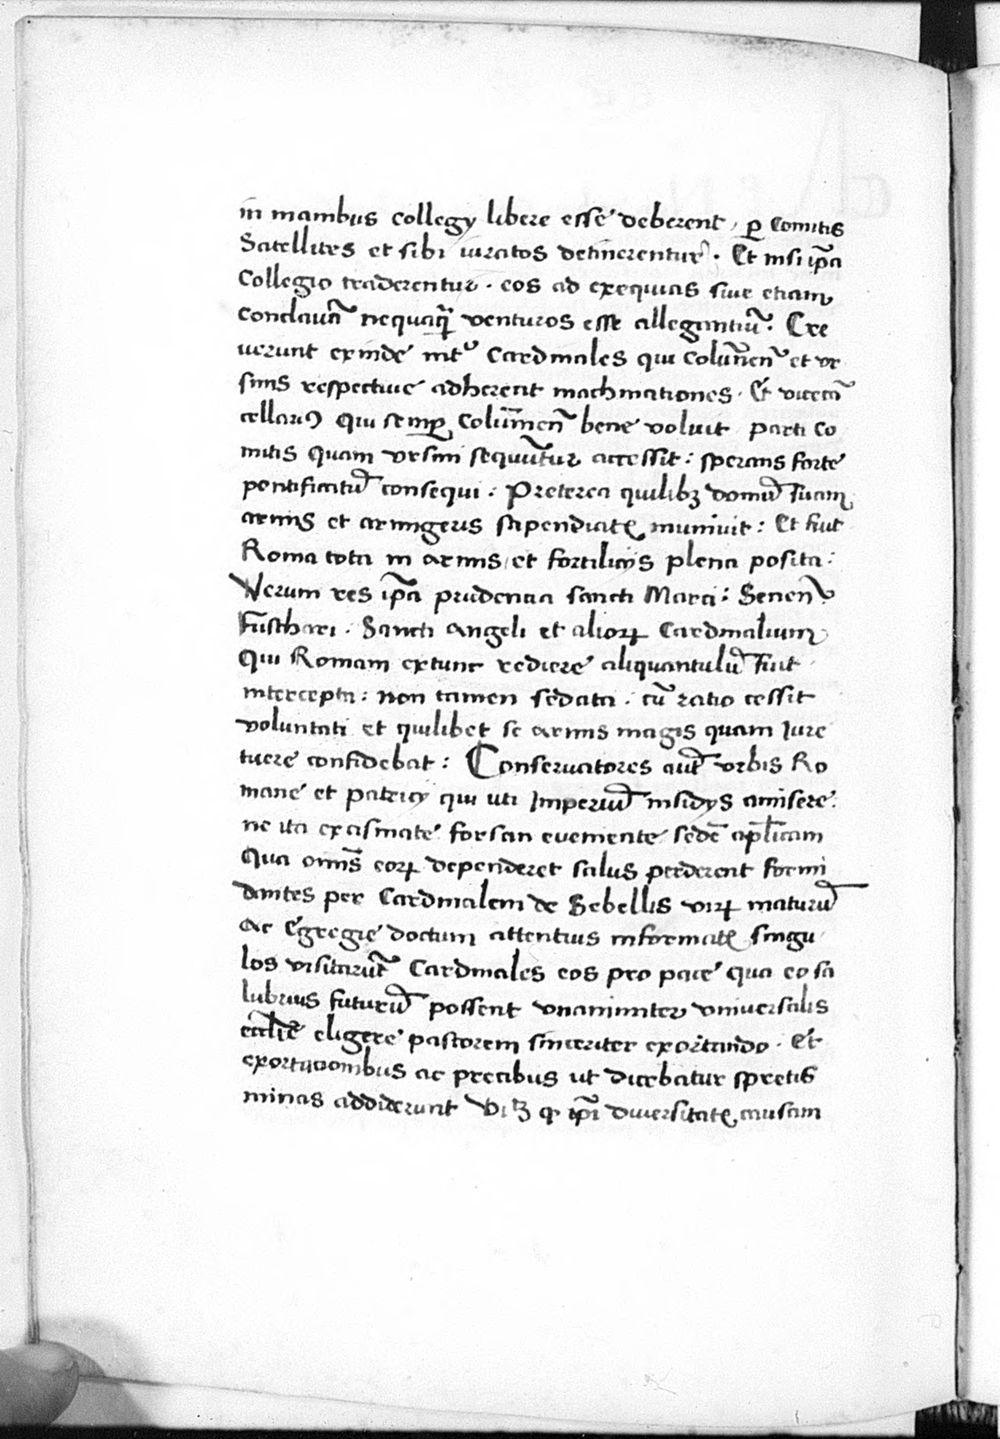 in manibus collegij libere esse deberent, ꝑ Comitis
Satellites et sibi iuratos detinerentur. Et nisi ip̄a
Collegio traderentur. eos ad exequias siue etiam
conclauā nequaq̄ venturos esse allegantiū. Cre
uerunt exinde int᷑ Cardinales qui Colūnen̄ et vr
sinis respectiue adherent machinationes. Et vicecā
cellariꝰ Qui semꝑ Colūmen̄ bene voluit parti Co
mitis Quam vrsini sequūtur accessit: sperans forte
pontificatū consequi: Preterea quilibꝫ domū suam
armis et armigeris stipendiatꝭ muniuit: Et fuit
Roma tota in armis et fortilicijs plena posita:
Verum res ip̄a prudentia sancti Marci: Senen̄
Fuschari. Sancti Angeli et alioꝝ Cardinalium
Qui Romam extunc rediere aliquantulū fuit
intercepta: non tamen sedata. cū ratio cessit
voluntati et quilibet se armis magis quam Iure
tuere confidebat: Conseruatores aūt vrbis Ro
mane et patricij qui uti Imperiū insidijs amisere.
ne ita ex cismate forsan eueniente sedē ap̄licam
Qua om̄is eoꝝ dependeret salus perderent formi
dantes per Cardinalem de Sebellis viꝝ maturū
Ac Egregie doctum attentius informatꝭ singu
los visitarūt Cardinales eos pro pace qua eo sa
lubrius futurū possent vnanimiter vniuersalis
eccl̄ie eligere pastorem sinceriter exortando. Et
exortacionibus ac precibus ut dicebatur spretis
minas addiderunt Viꝫ ꝙ ip̄i diuersitatꝭ causam